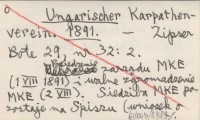 Ungarischer Karpathen-
verein. 1891. — Zipser
Bote 29, nr 32: 2.
Posiedzenie zarządu MKE
(1 VIII 1891), walne zgromadzenie
MKE (2 VIII). Siedziba MKE po-
zostaje na Spiszu (wniosek o